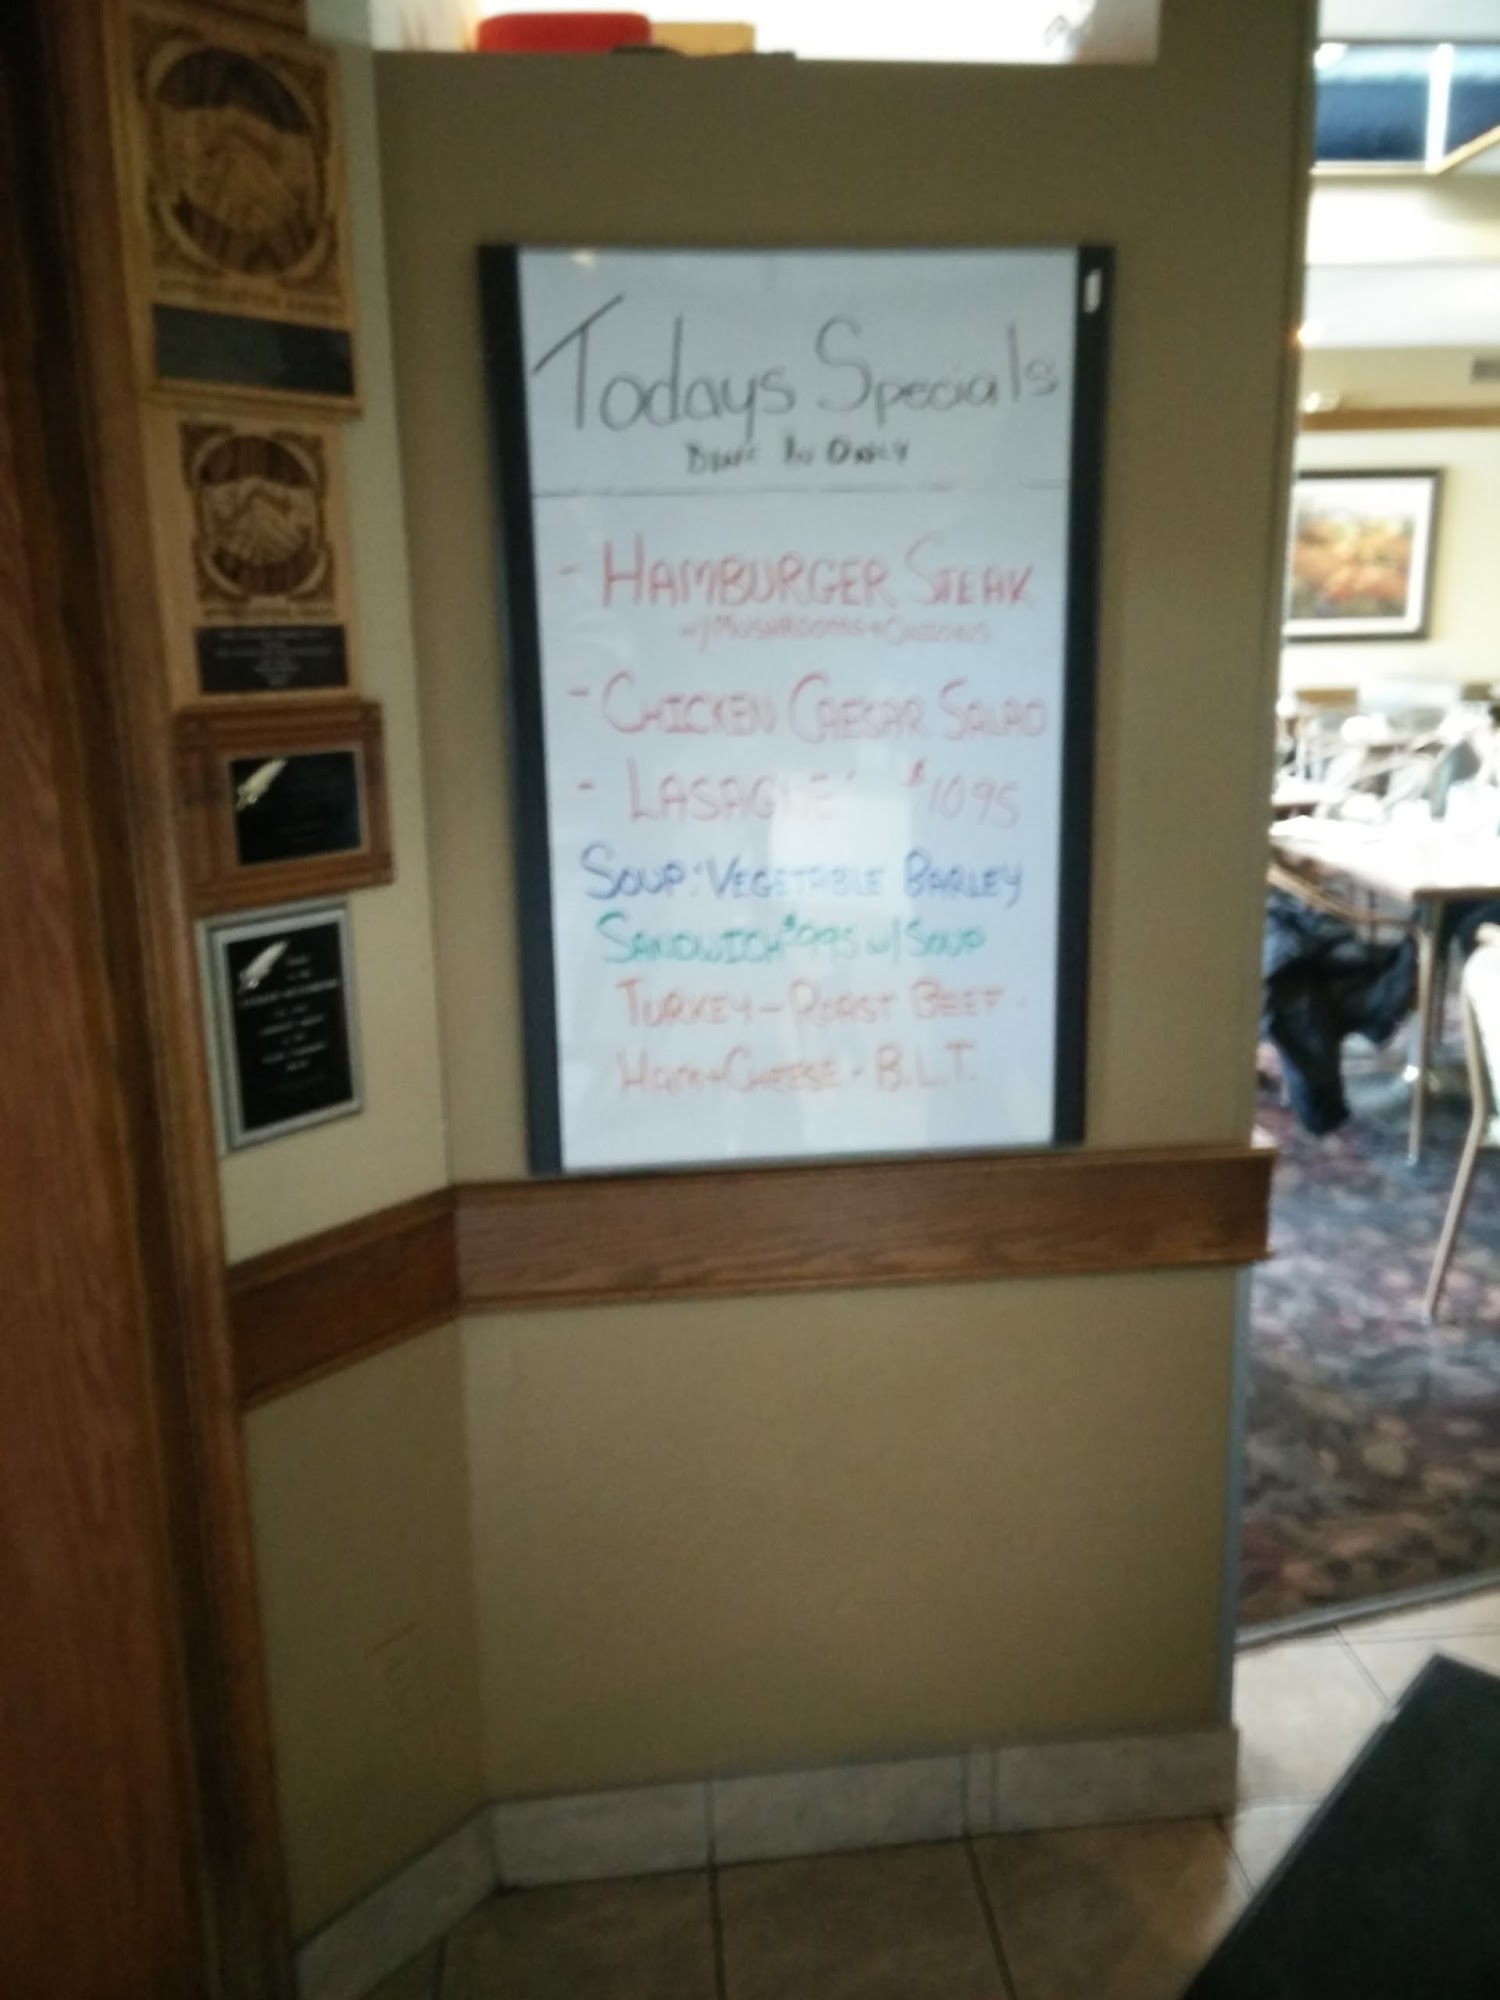 Todays Specials
DINE IN ONLY
- HAMBURGER STEAK
w/ MUSHROOMS + ONIONS
- CHICKEN CAESAR SALAD
- LASAGNE $1095
SOUP: VEGETABLE BARLEY
SANDWICH $995 w/ SOUP
TURKEY - ROAST BEEF
HAM + CHEESE - B.L.T.
APPRECIATION AWARD